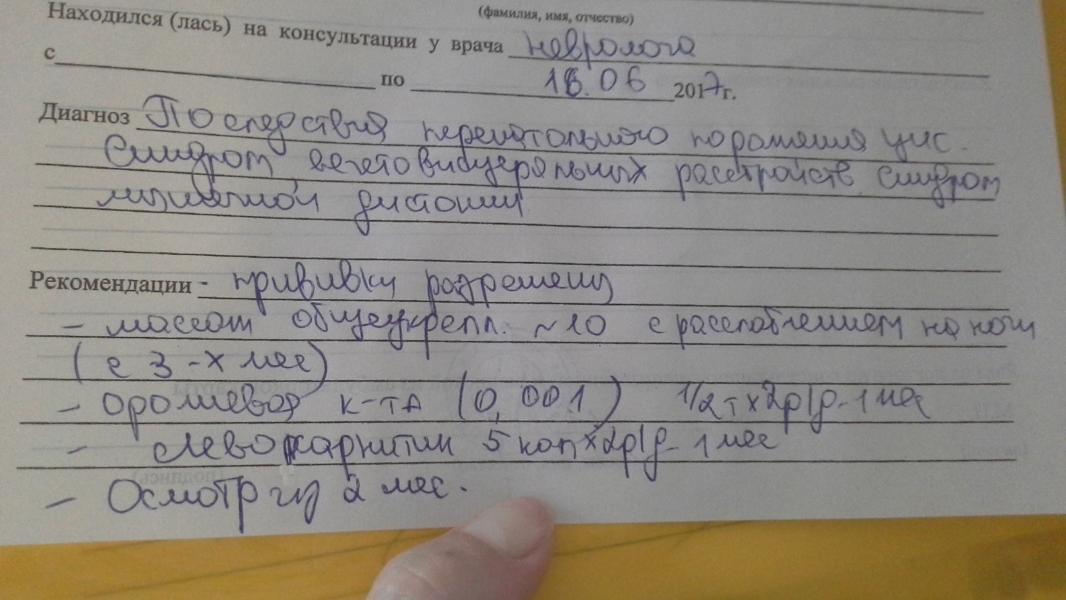 (фамилия, имя, отчество)
Находился (лась) на консультации у врача невролога
с по 16.06 2017г.
Диагноз Последствия перенатального поражения ЦНС.
Синдром вегетовисцеральных расстройств синдром
мышечной дистонии
Рекомендации - прививки разрешены
- массаж общеукрепл. №10 с расслаблением на ноги
(с 3-х мес)
- оротовая к-та (0,001) 1/2т х 2р/д - 1 мес
- левокарнитин 5 кап х 2р/д - 1 мес
- Осмотр ч/з 2 мес.